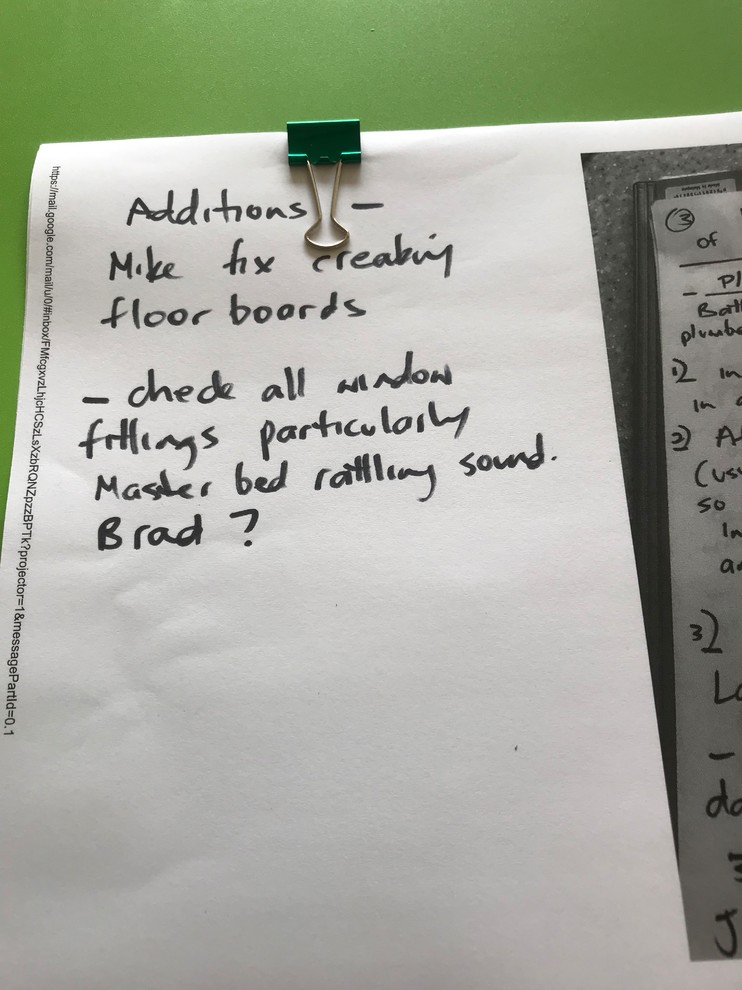 Additions –
Mike fix creaking
floor boards
– check all window
fittings particularly
Master bed rattling sound.
Brad ?
https://mail.google.com/mail/u/0/#inbox/FMfcgxvzLhjcHCSzLsXzbRQNZpzzBPTk?projector=1&messagePartId=0.1
3
of
– Pl
Bath
plumbe
1) in
in a
2)
(us
so
In
an
3)
Lo
–
do
J